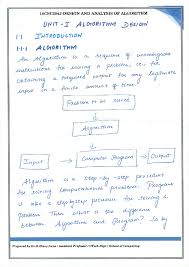 DESIGN AND ANALYSIS OF ALGORITHM
UNIT-I ALGORITHM DESIGN
1.1 INTRODUCTION
1.1.1 ALGORITHM
An Algorithm is a sequence of unambiguous
instructions for solving a problem, i.e. for
obtaining a required output for any legitimate
input in a finite amount of time.
Problem to be solved
Algorithm
Input
Computer Program
Output
Algorithm is a step-by-step process
for solving computational problems. Program
is also a step by step procedure for solving a
problem. Then what is the difference
between Algorithm and Program?